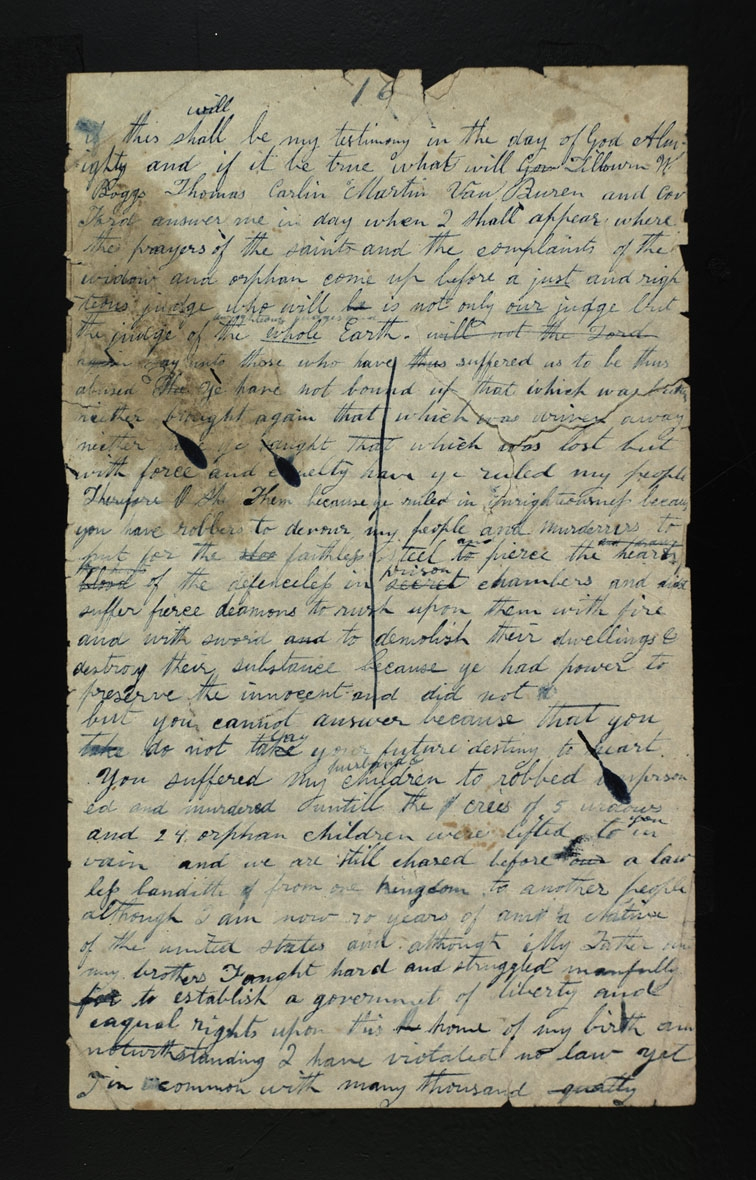 16
will
this shall be my testimony in the day of God Alm-
ighty and if it be true what will Gov Lilburn W
Boggs Thomas Carlin Martin Van Buren and Gov
Ford answer me in day when I shall appear where
the prayers of the saints and the complaints of the
widow and orphan come up before a just and righ
teous judge who will be is not only our judge but
the judge of the whole Earth. will not the Lord
say unto those who have thus suffered us to be thus
abused ye have not bound up that which was
neither brought again that which was driven away
neither ye saught that which was lost but
with force and cruelty have ye ruled my people
Therefore O Them because ye ruled in unrighteousness becau
you have robbers to devour my people and Murderrers to
put for the faithless steel to pierce the hearts
blood of the defenceless in prison secret chambers and
suffer fierce deamons to rush upon them with fire
and with sword and to demolish their dwellings &
destroy their substance because ye had power to
preserve the innocent and did not
but you cannot answer because that you
take do not take lay your future destiny to heart
husbands
You suffered my children to robbed imprison
ed and murdered untill the cries of 5 widows
and 24 orphan children were lifted to you in
vain and we are still chased before a law
less banditti from one kingdom to another people
although I am now 70 years of a Native
of the united states and although My Father
my brothers Faught hard and struggled manfully
for to establish a governmet of liberty and
eaqual rights upon this home of my birth an
notwithstanding I have violated no law yet
I in common with many thousand